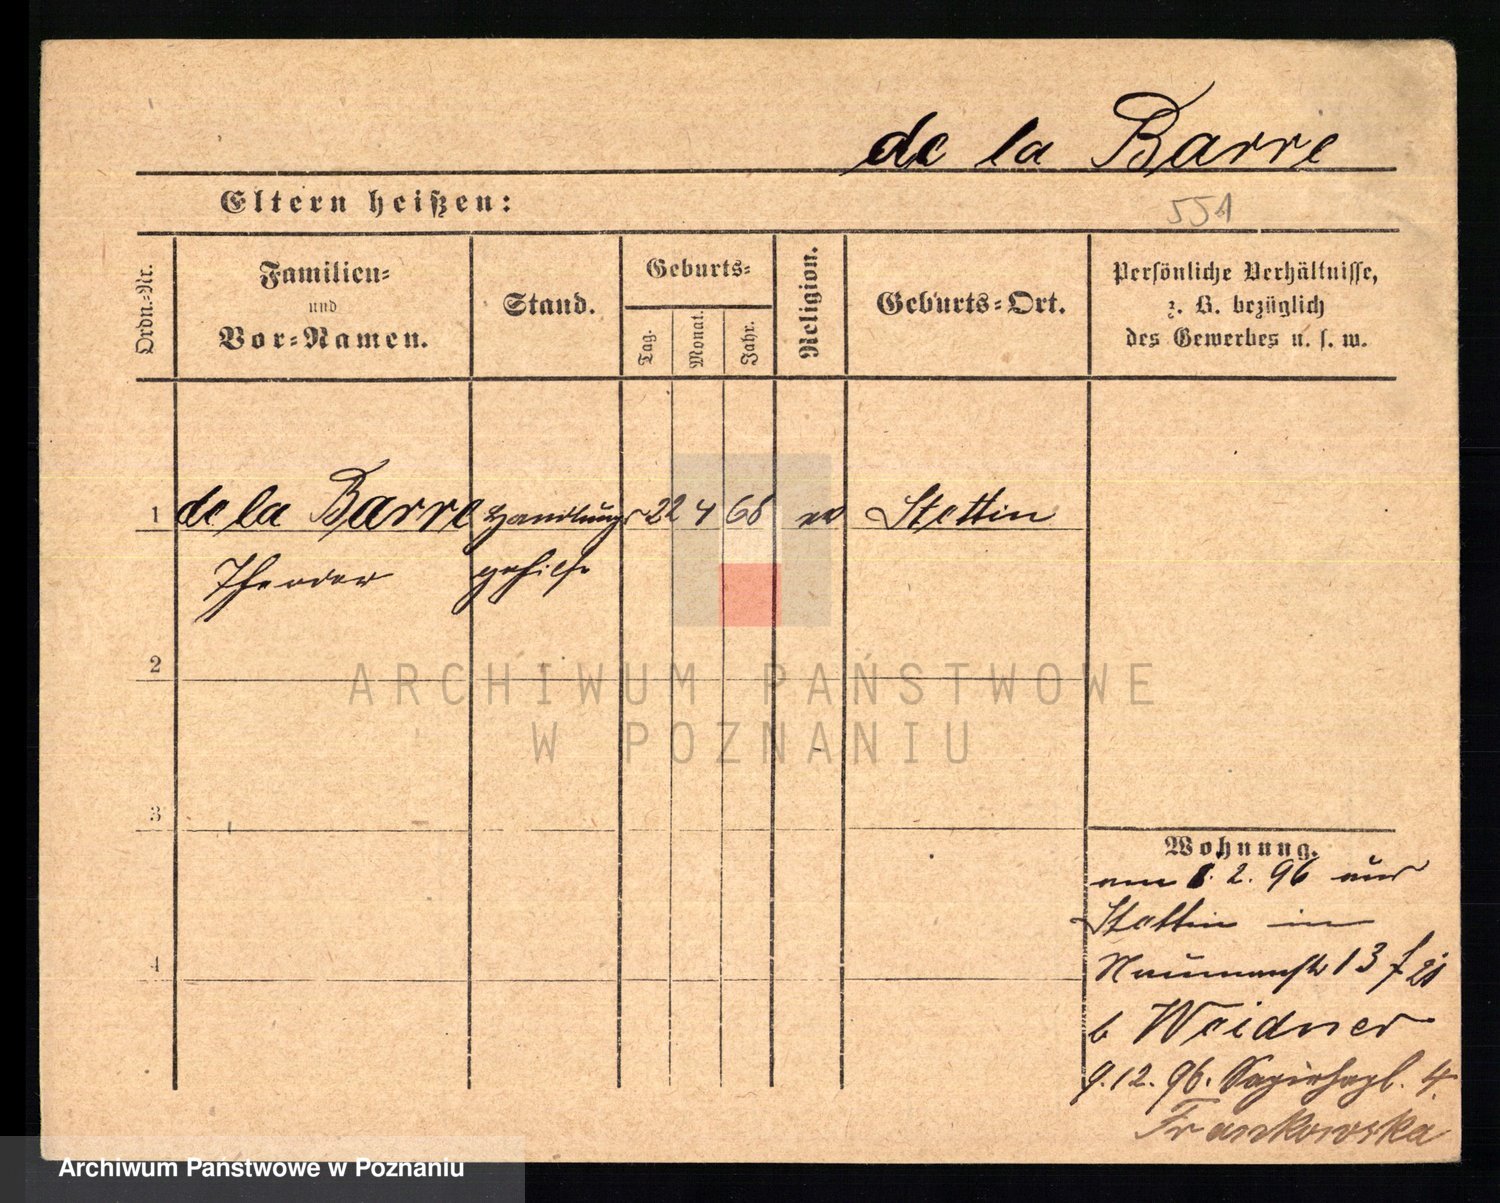 de la Barre
Eltern heißen:
551
Ordn.-Nr.
Familien-
und
Vor-Namen.
Stand.
Geburts-
Tag.
Monat.
Jahr.
Religion.
Geburts-Ort.
Persönliche Verhältnisse,
z. B. bezüglich
des Gewerbes u. s. w.
1 de la Barre Handlungs 22 4 68 ev Stettin
Theodor gehilfe
2
ARCHIWUM PAŃSTWOWE
W POZNANIU
3
Wohnung.
am 8. 2. 96 aus
Stettin in
4
Naumannstr 13
b Weidner
9.12.96. Sapiehapl. 4.
Frankowska
Archiwum Państwowe w Poznaniu